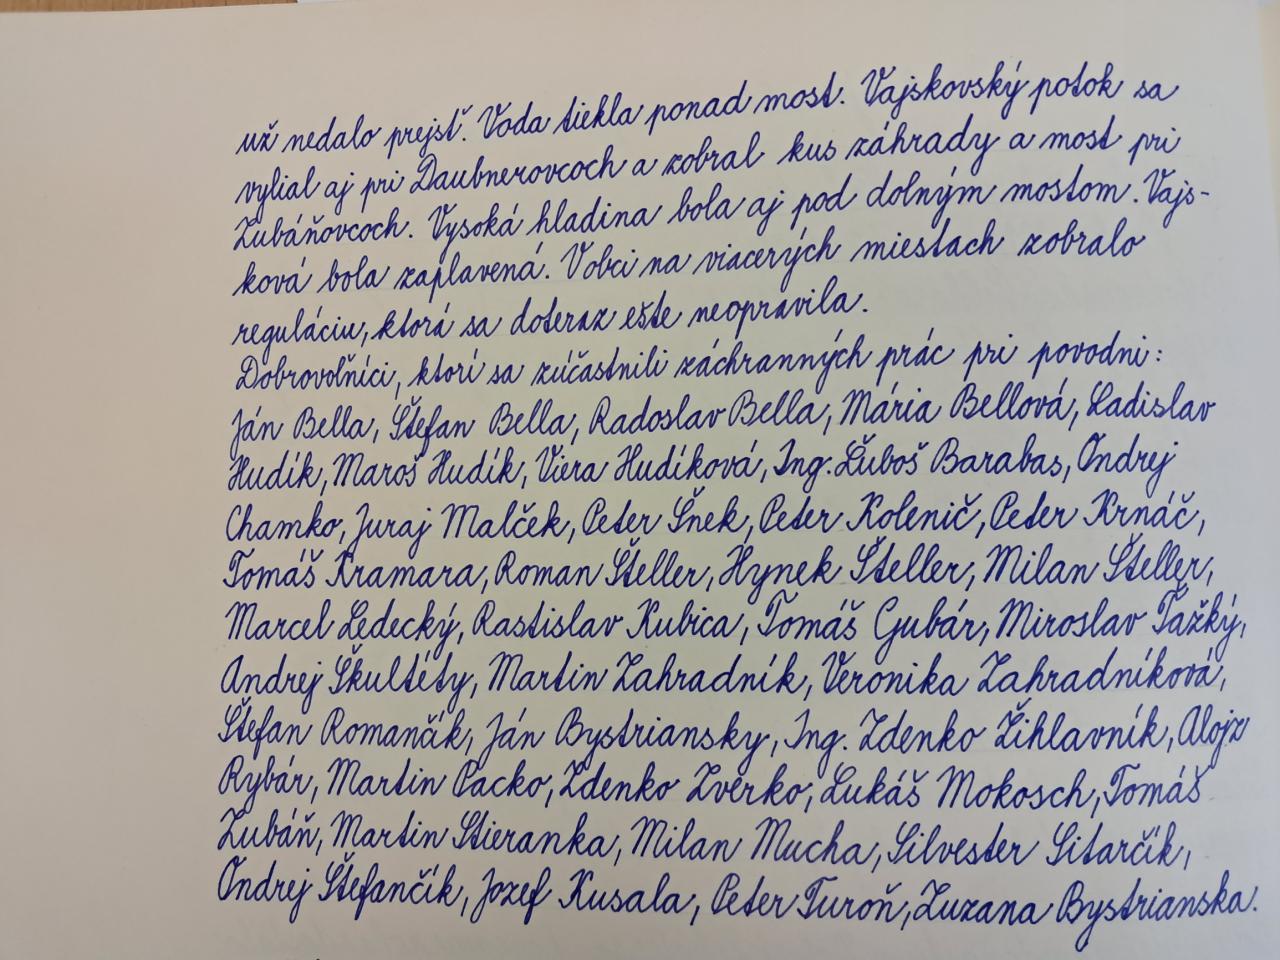 už nedalo prejsť. Voda tiekla ponad most. Vajskovský potok sa
vylial aj pri Daubnerovcoch a zobral kus záhrady a most pri
Zubáňovcoch. Vysoká hladina bola aj pod dolným mostom. Vajs-
ková bola zaplavená. V obci na viacerých miestach zobralo
reguláciu, ktorá sa doteraz ešte neopravila.
Dobrovoľníci, ktorí sa zúčastnili záchranných prác pri povodni:
Ján Bella, Štefan Bella, Radoslav Bella, Mária Bellová, Ladislav
Hudík, Maroš Hudík, Viera Hudíková, Ing. Ľuboš Barabas, Ondrej
Chamko, Juraj Malček, Peter Šnek, Peter Kolenič, Peter Krnáč,
Tomáš Kramara, Roman Šteller, Hynek Šteller, Milan Šteller,
Marcel Ledecký, Rastislav Kubica, Tomáš Gubár, Miroslav Ťažký,
Andrej Škultéty, Martin Zahradník, Veronika Zahradníková,
Štefan Romančík, Ján Bystriansky, Ing. Zdenko Žihlavník, Alojz
Rybár, Martin Packo, Zdenko Zverko, Lukáš Mokosch, Tomáš
Zubáň, Martin Stieranka, Milan Mucha, Silvester Sitarčík,
Ondrej Štefančík, Jozef Kusala, Peter Turoň, Zuzana Bystrianska.